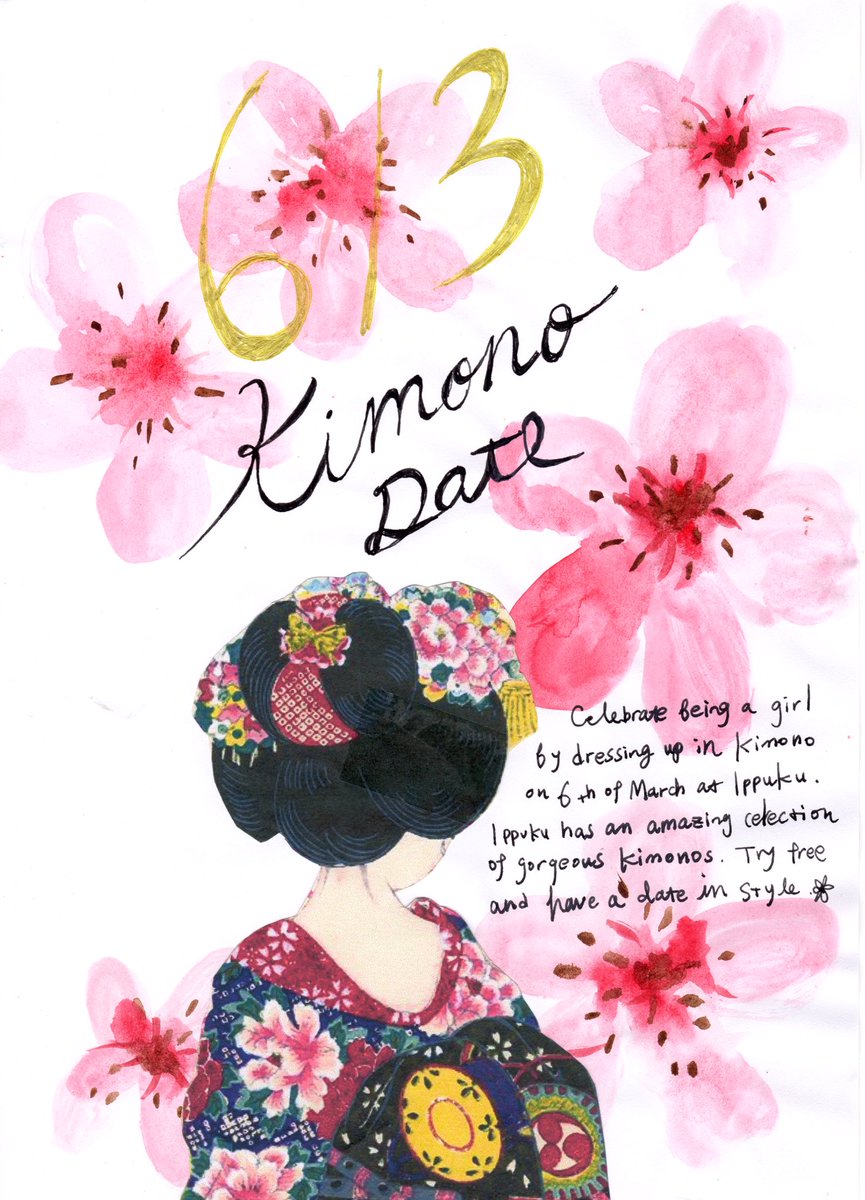 6/3
Kimono
Date
Celebrate being a girl
by dressing up in Kimono
on 6th of March at Ippuku.
Ippuku has an amazing celection
of gorgeous kimonos. Try free
and have a date in style.